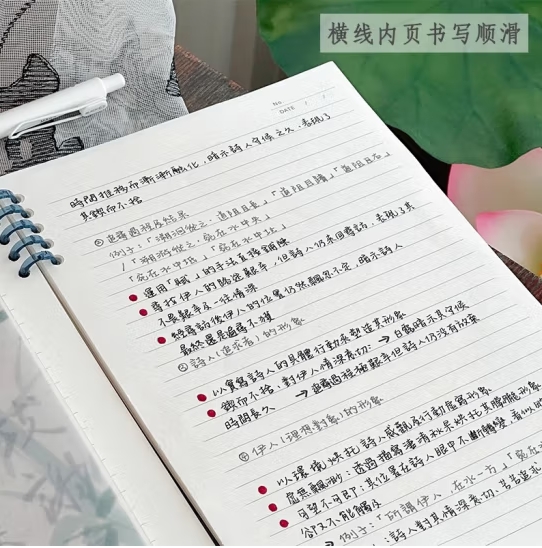 横线内页书写顺滑
No.
DATE / /
時間推移而漸漸融化,暗示詩人守候之久,表現了
其鍥而不捨
追尋過程及結果
例子:「溯洄從之,道阻且長」「道阻且躋」「道阻且右」
/「溯游從之,宛在水中央」
「宛在水中坻」「宛在水中沚」
運用「賦」的手法直接鋪陳
尋找伊人的路途艱辛,但詩人仍來回尋訪,表現了其
不畏艱辛及一往情深
經尋訪後伊人的位置仍然飄忽不定,暗示詩人
最終還是遍尋不獲
詩人(追求者)的形象
以實寫詩人的具體行動來塑造其形象
鍥而不捨:對伊人情深意切: → 白露暗示其守候
時間長久 → 追尋過程極艱辛但詩人仍沒有放棄
④ 伊人(理想對象)的形象
以環境烘托詩人感觀及行動虛寫形象
虛無飄渺:透過描寫淒清秋景烘托其朦朧形象
可望不可即:其位置在詩人眼中不斷轉變,看似
卻又不能觸及
→ 例子:「所謂伊人,在水一方」「宛在
:詩人對其情深意切,苦苦追求